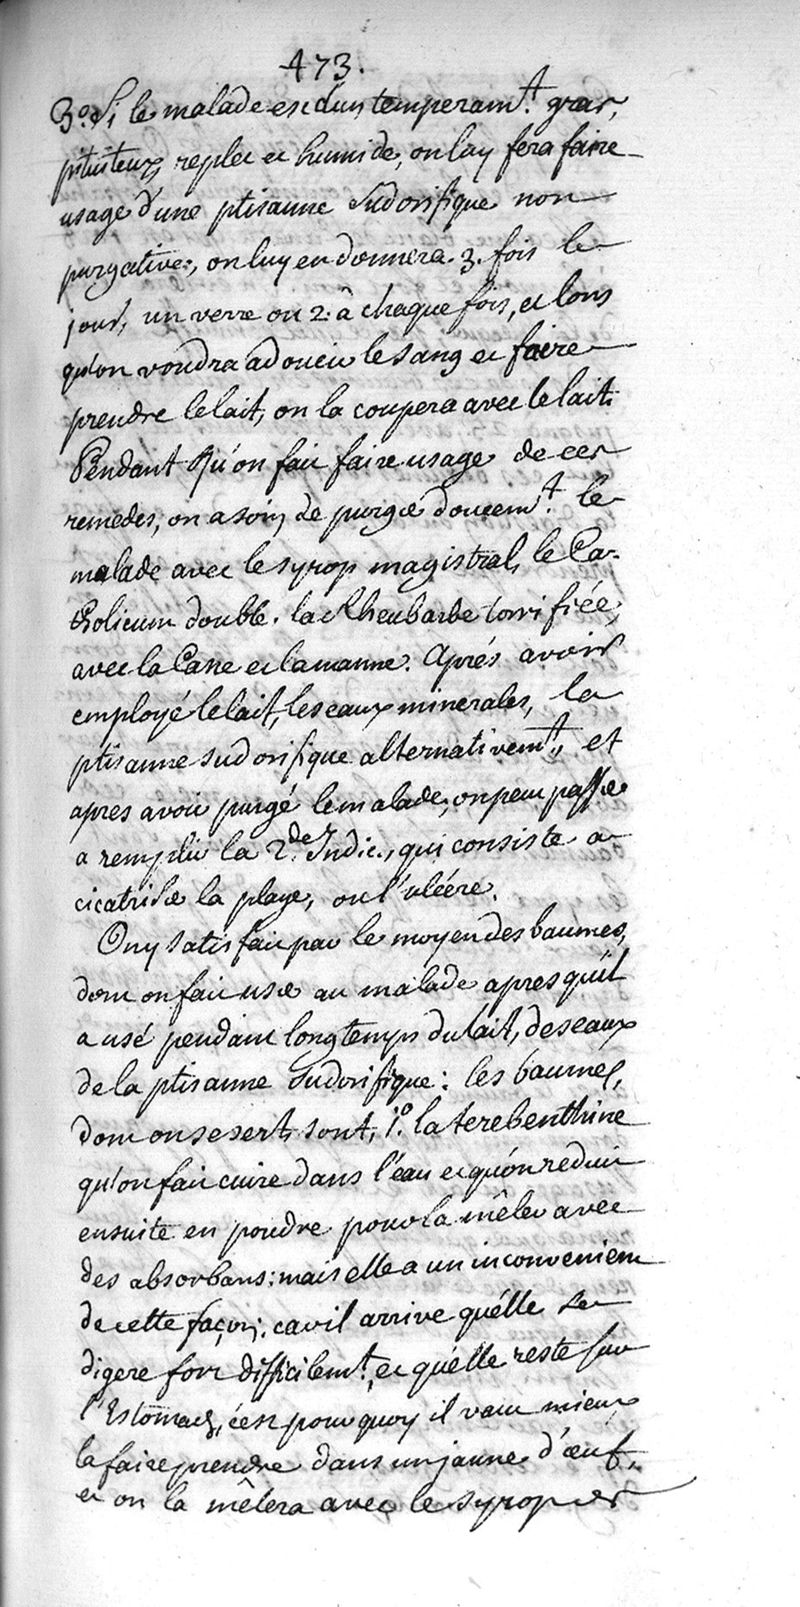 473.
3.° Si le malade est d'un temperam.t gras,
pituiteux, replet et humide, on luy fera faire
usage d'une ptisanne Sudorifique non
purgative:, on luy en donnera. 3. fois le
jour, un verre ou 2. â chaque fois, et lors
qu'on voudra adoucir le sang et faire
prendre le lait, on la coupera avec le lait.
Pendant Qu'on fait faire usage de ces
remedes, on a soin, de purger doucem.t le
malade avec le syrop magistral, le Ca-
tholicum double. la Rheubarbe torrifiée,
avec la Casse et la manne. Aprés avoir
employé le lait, les eaux minerales, la
ptisanne sudorifique alternativem.t, et
apres avoir purgé le malade, on peut passer
a remplir la 2.de Indic., qui consiste a
cicatriser la playe, ou l'ulcére.
On y satisfait par le moyen des baumes,
dont on fait user au malade apres qu'il
a usé pendant longtemps du lait, des eaux
de la ptisanne Sudorifique: les baumes,
dont on se sert, sont, 1.° la terebenthine
qu'on fait cuire dans l'eau et qu'on reduit
ensuite en poudre pour la mêler avec
des absorbans: mais elle a un inconvenient
de cette façon; car il arrive qu'élle se
digere fort difficilem.t, et qu'élle reste sur
l'Estomach, c'est pourquoy il vaut mieux
la faire prendre dans un jaune d'œuf,
et on la mêlera avec le syrop de